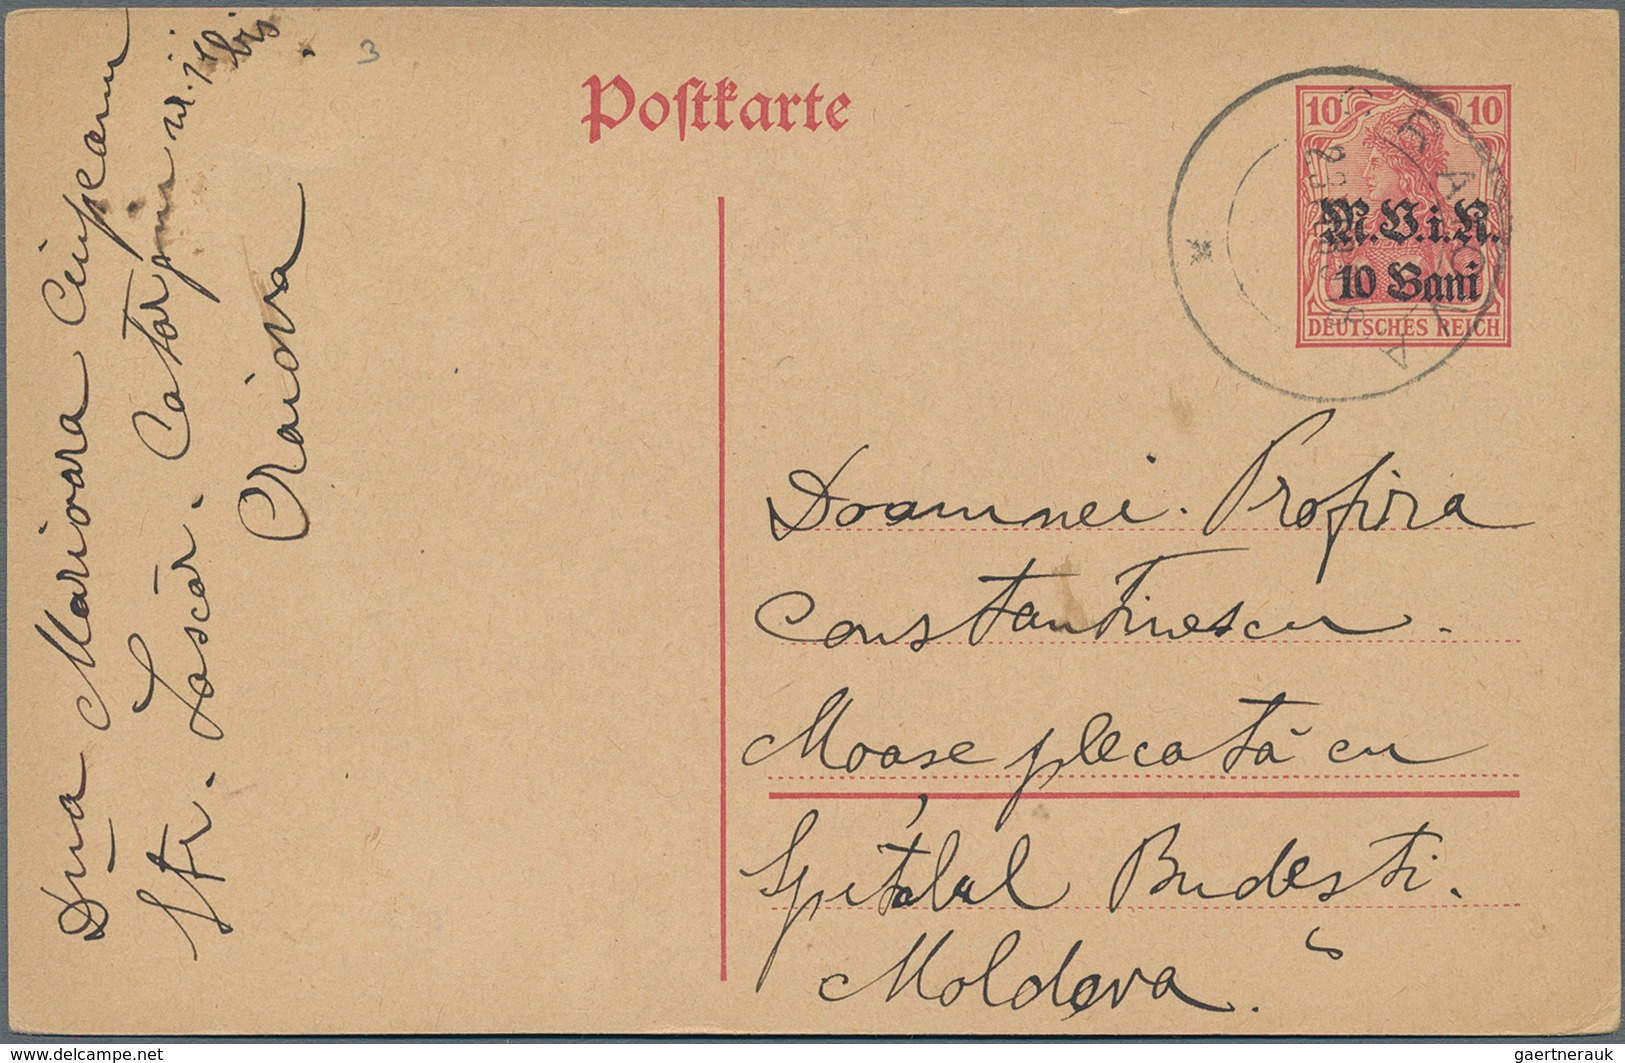 Dna Marioara Cimpeanu
Str. Lascăr. Catargiu nr. 140 bis
Craiova
3
Postkarte
10 10
M.V.i.R.
10 Bani
DEUTSCHES REICH
CRAIOVA
Doamnei. Profira
Constantinescu.
Moașe plecată cu
Spitalul Budești.
Moldova.
www.delcampe.net
gaertnerauk